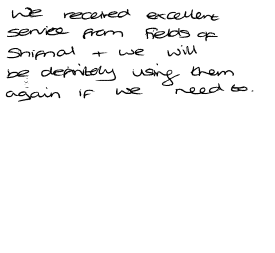 We received excellent
service from Fields of
Shifnal + we will
be definitely using them
again if we need to.